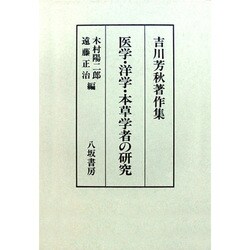 吉川芳秋著作集
医学・洋学・本草学者の研究
木村陽二郎
遠藤正治 編
八坂書房